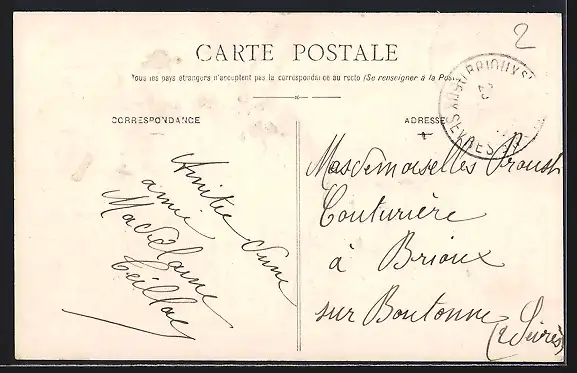 2
CARTE POSTALE
Tous les pays étrangers n'acceptent pas la correspondance au recto (Se renseigner à la Poste)
CORRESPONDANCE
ADRESSE
Amitié d'une
amie
Madelaine
Mesdemoiselles
Couturière
à Brioux
sur Boutonne
(2 Sèvres)
BRIOUX S
SEVRES